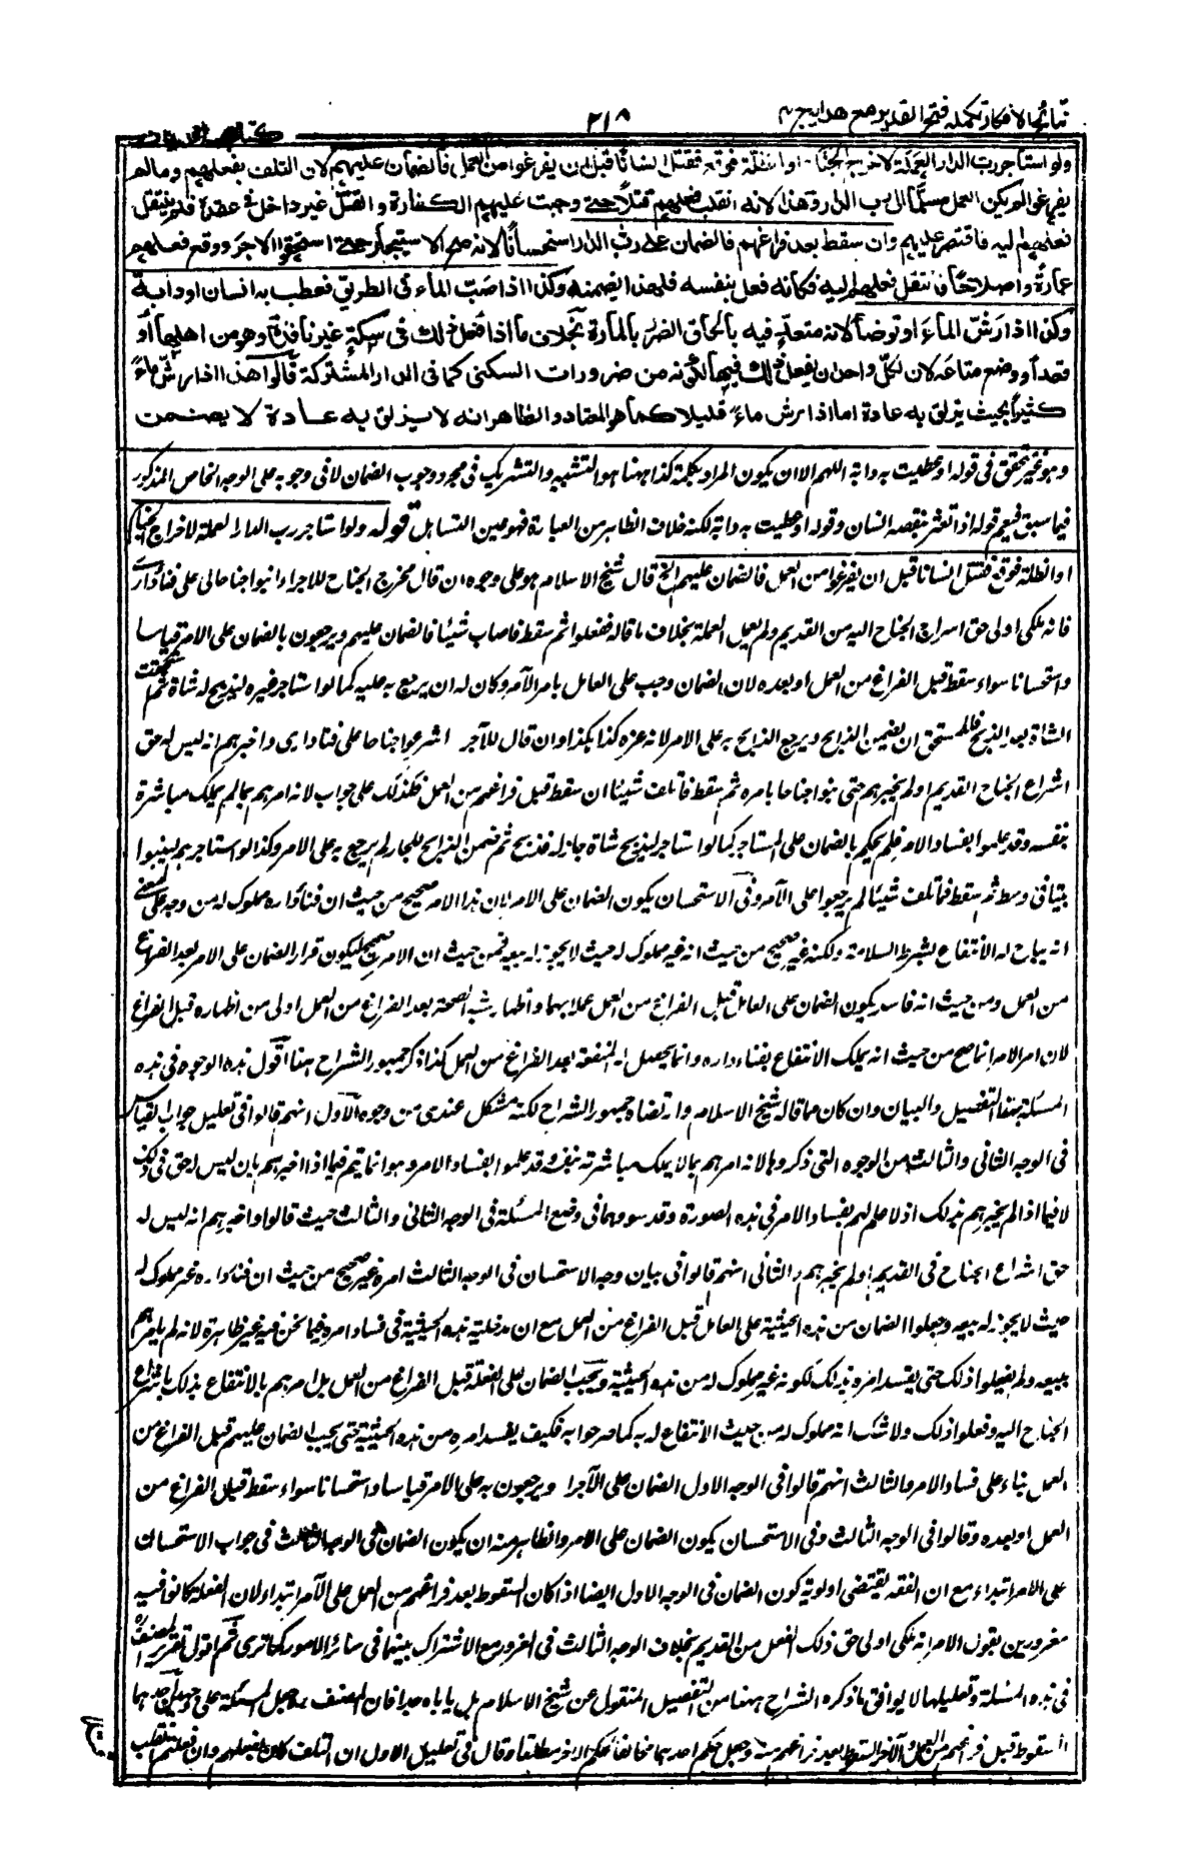 نتائج الافكار تكملة فتح القدير مع هدايہ ج ۴
٢١٨
كتاب الديات
ولو استأجر رب الدار العملة لاخراج الجناح او الظلة فوقع فقتل انسانا قبل ان يفرغوا من العمل فالضمان عليهم لان التلف بفعلهم وما لم
يفرغوا لم يكن العمل مسلّما الى رب الدار وهذا لانه انقلب فعلهم قتلاً حتى وجبت عليهم الكفارة والقتل غير داخل فى عقده فلم ينتقل
فعلهم اليه فاقتصر عليهم وان سقط بعد فراغهم فالضمان على رب الدار استحساناً لانه صح الاستيجار حتى استحقوا الاجر ووقع فعلهم
عمارةً واصلاحًا فانتقل فعلهم اليه فكأنه فعل بنفسه فلهذا يضمنه وكذا اذا صَبّ الماء فى الطريق فعطب به انسان او دابة
وكذا اذا رَشّ الماءَ او توضأ لانه متعدٍّ فيه بالحاق الضرر بالمارة بخلاف ما اذا فعل ذلك فى سكةٍ غير نافذةٍ وهو من اهلها او
قعد او وضع متاعه لان لكلّ واحد ان يفعل ذلك فيها لكونه من ضرورات السكنى كما فى الدار المشتركة قالوا هذا اذا رشّ ماءً
كثيراً بحيث يزلق به عادة اما اذا رش ماءً قليلا كما هو المعتاد والظاهر انه لا يزلق به عادة لا يضمن
وهو غير محقق فى قوله او عطبت به دابة اللهم الا ان يكون المراد بكلمة كذا ههنا هو التشبيه والتشريك فى مجرد وجوب الضمان لا فى وجوبه على الوجه الخاص المذكور
فيما سبق فيعم قوله اذا تعثر بنقضه انسان وقوله او عطبت به دابة لكنه خلاف الظاهر من العبارة فهو عين التساهل قوله ولو استاجر رب الدار العملة لاخراج الجناح
او الظلة فوقع فقتل انسانا قبل ان يفرغوا من العمل فالضمان عليهم الخ قال شيخ الاسلام هو على وجوه ان قال مخرج الجناح للاجراء ابنوا جناحا لى على فناء دارى
فانه ملكى او لى حق اشراع الجناح اليه من القديم ولم يعلم العملة بخلاف ما قاله ففعلوا ثم سقط فاصاب شيئا فالضمان عليهم ويرجعون بالضمان على الآمر قياسا
واستحسانا سواء سقط قبل الفراغ من العمل او بعده لان الضمان وجب على العامل بامر الآمر وكان له ان يرجع به عليه كما لو استاجر غيره ليذبح له شاة ثم استحقت
الشاة بعد الذبح فللمستحق ان يضمن الذابح ويرجع الذابح به على الآمر لانه غره كذا هكذا وان قال للآجر اشرعوا جناحا على فناء دارى واخبرهم انه ليس له حق
اشراع الجناح القديم او لم يخبرهم حتى بنوا جناحا بامره ثم سقط فاتلف شيئا ان سقط قبل فراغهم من العمل فكذلك على جواب لانه امرهم بما لم يملك مباشرة
بنفسه وقد علموا بفساد الامر فلم يحكم بالضمان على المستاجر كما لو استاجر ليذبح شاة جار له فذبح ثم ضمن الذابح للجار لم يرجع به على الآمر وكذا لو استاجرهم ليبنوا
بيتا فى وسط ثم سقط فاتلف شيئا لم يرجعوا على الآمر وفى الاستحسان يكون الضمان على الآمر لان هذا الامر صحيح من حيث ان فناء داره مملوك له من وجه على معنى
انه يباح له الانتفاع بشرط السلامة ولكنه غير صحيح من حيث انه غير مملوك له حيث لا يجوز له بيعه فمن حيث ان الامر صحيح يكون قرار الضمان على الآمر بعد الفراغ
من العمل ومن حيث انه فاسد يكون الضمان على العامل قبل الفراغ من العمل عملا بهما واظهار شبه الصحة بعد الفراغ من العمل اولى من اظهاره قبل الفراغ
لان امر الآمر انما صح من حيث انه يملك الانتفاع بفناء داره وانما يحصل له المنفعة بعد الفراغ من العمل كذا ذكر جمهور الشراح ههنا اقول هذه الوجوه فى هذه
المسئلة بهذا التفصيل والبيان وان كان مما قاله شيخ الاسلام وارتضاه جمهور الشراح لكنه مشكل عندى من وجوه الاول انهم قالوا فى تعليل جواب القياس
فى الوجه الثانى والثالث من الوجوه التى ذكروها لانه امرهم بما لا يملك مباشرته بنفسه وقد علموا بفساد الامر وهو انما يتم فيما اذا اخبرهم بان ليس له حق فى ذلك
لا فيما اذا لم يخبرهم بذلك اذ لا علم لهم بفساد الامر فى هذه الصورة وقد سووهما فى وضع المسئلة فى الوجه الثانى والثالث حيث قالوا واخبرهم انه ليس له
حق اشراع الجناح فى القديم او لم يخبرهم والثانى انهم قالوا فى بيان وجه الاستحسان فى الوجه الثالث امره غير صحيح من حيث ان فناء داره غير مملوك له
حيث لا يجوز له بيعه وجعلوا الضمان من هذه الحيثية على العامل قبل الفراغ من العمل مع ان مدخلية هذه الحيثية فى فساد امره فيما نحن فيه غير ظاهرة لانه لم يامرهم
ببيعه ولم يفعلوا ذلك حتى يفسد امره بذلك لكونه غير مملوك له من هذه الحيثية ويجب الضمان على الفعلة قبل الفراغ من العمل بل امرهم بالانتفاع بذلك باشراع
الجناح اليه وفعلوا ذلك ولا شك انه مملوك له من حيث الانتفاع له به كما صرحوا به فكيف يفسد امره من هذه الحيثية حتى يجب الضمان عليهم قبل الفراغ من
العمل بناء على فساد الامر والثالث انهم قالوا فى الوجه الاول الضمان على الآجرا ويرجعون به على الآمر قياسا واستحسانا سواء سقط قبل الفراغ من
العمل او بعده وقالوا فى الوجه الثالث وفى الاستحسان يكون الضمان على الآمر والظاهر منه ان يكون الضمان فى الوجه الثالث فى جواب الاستحسان
على الآمر ابتداء مع ان الفقه يقتضى اولوية كون الضمان فى الوجه الاول ايضا اذا كان السقوط بعد فراغهم من العمل على الآمر ابتداء لان الفعلة كانوا فيه
مغرورين بقول الآمر انه ملكى او لى حق ذلك الفعل من القديم بخلاف الوجه الثالث فى الغرور مع الاشتراك بينهما فى سائر الامور كما ترى ثم اقول تقرير المصنف
فى هذه المسئلة وتعليلها لا يوافق ما ذكره الشراح ههنا من التفصيل المنقول عن شيخ الاسلام بل ياباه جدا فان المصنف جعل المسئلة على وجهين احدهما
السقوط قبل فراغهم من العمل والآخر السقوط بعد فراغهم منه وجعل حكم احدهما مخالفا لحكم الآخر مطلقا وقال فى تعليل الاول ان التلف كان بفعلهم وان فعلهم انقلب